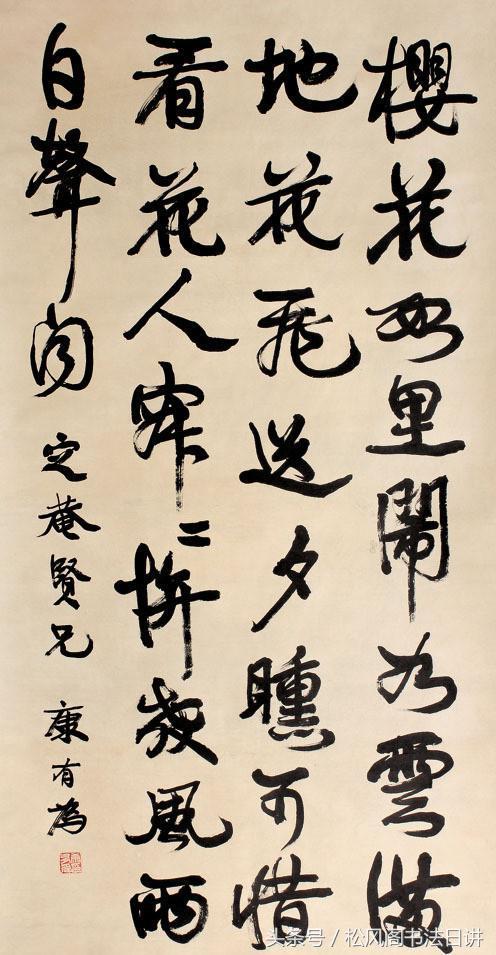 櫻花里鬧如雲滿
地花飛送夕曛可惜
看花人寂二拚教風雨
自聲聞 定菴賢兄 康有為
头条号 / 松风阁书法日讲